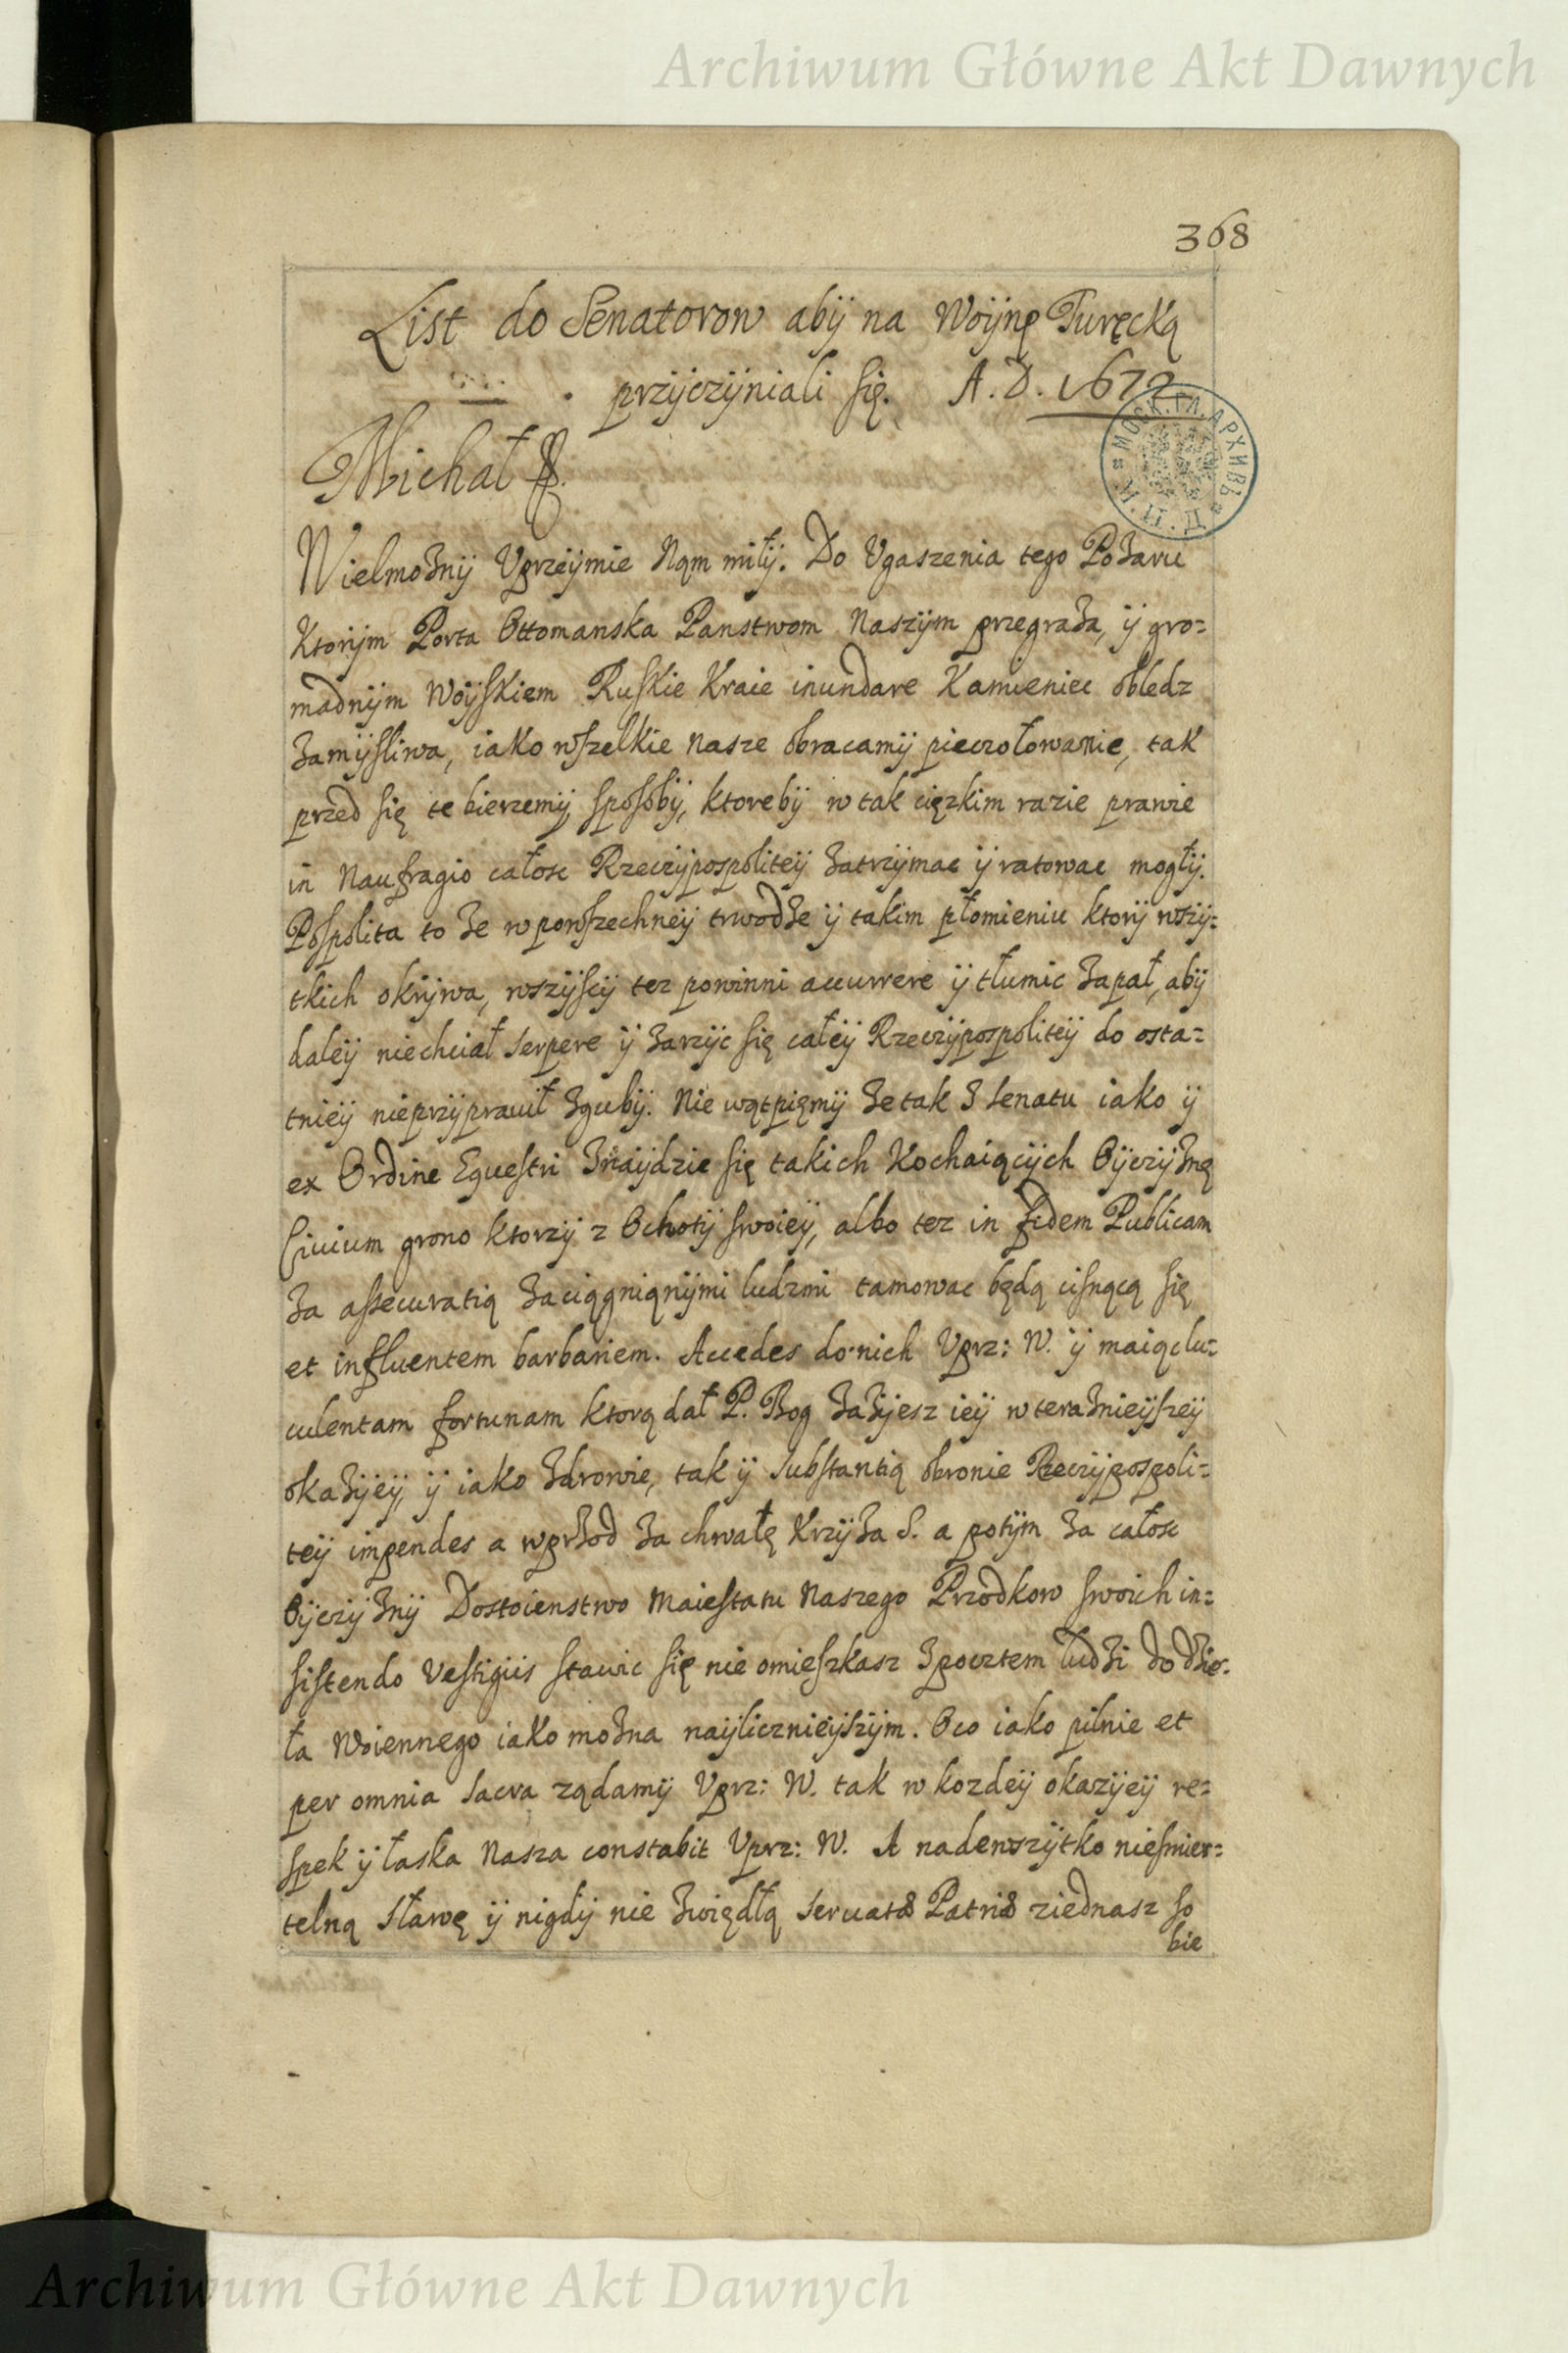 Archiwum Główne Akt Dawnych
368
List do Senatorow abÿ na Woÿnę Turęcką
przÿczÿniali się. A. D. 1672
МОСК. ГЛ. АРХИВЪ
М. И. Д.
Michał
Wielmożnÿ Vprzeÿmie Nąm miłÿ. Do Vgaszenia tego Pożaru
Ktorÿm Porta Ottomanska Panstwom Naszÿm przegraża, ÿ gro=
madnÿm Woÿskiem Ruskie Kraie inundare Kamieniec obledz
zamÿsliwa, iako wszelkie nasze obracamÿ pieczołowanie, tak
przed się te bierzemÿ sposobÿ, ktorebÿ w tak cięzkim razie prawie
in Naufragio całosc Rzeczÿpospoliteÿ zatrzÿmac ÿ ratowac mogłÿ.
Pospolita to że w powszechneÿ trwodze ÿ takim płomieniu ktorÿ wszÿ=
tkich okrÿwa, wszÿscÿ tez powinni accurrere ÿ tłumic zapał, abÿ
daleÿ niechciał serpere ÿ zarzÿc się całeÿ Rzeczÿpospoliteÿ do osta=
tnieÿ nieprzÿprawił zgubÿ. Nie wątpięmÿ że tak z senatu iako ÿ
ex Ordine Equestri znaÿdzie się takich Kochaiącÿch Oÿczÿznę
Ciuium grono ktorzÿ z Ochotÿ swoieÿ, albo tez in fidem Publicam
za assecuratią zaciągniąnÿmi ludzmi tamowac będą cisnącą się
et influentem barbariem. Accedes do nich Vprz: W. ÿ maiąc lu=
culentam fortunam ktorą dał P. Bog zażÿiesz ieÿ w teraznieÿszeÿ
okazÿeÿ, ÿ iako zdrowie, tak ÿ substantią obronie Rzeczÿpospoli=
teÿ impendes a wprzod za chwałę Krzÿża S. a potÿm za całosc
Oÿczÿznÿ Dostoienstwo Maiestatu Naszego Przodkow swoich in=
sistendo Vestigiis stawic się nie omieszkasz z pocztem ludzi do dzie=
ła Woiennego iako można naÿlicznieÿszÿm. Oco iako pilnie et
per omnia sacra ządamÿ Vprz: W. tak w kozdeÿ okazÿeÿ re=
spek ÿ łaska Nasza constabit Vprz: W. A nadewszÿtko niesmier=
telną sławę ÿ nigdÿ nie zwiędłą seruatæ Patriæ ziednasz so
bie
Archiwum Główne Akt Dawnych